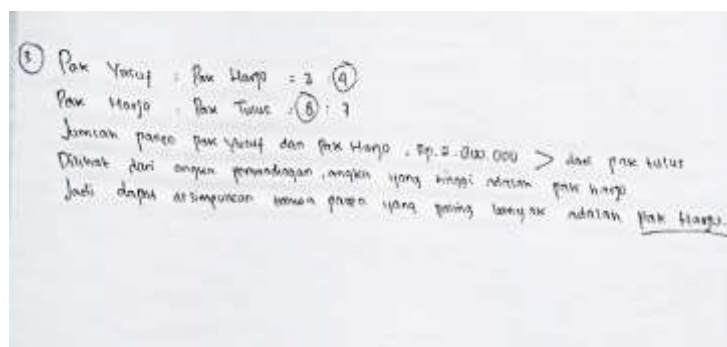 ③ Pak Yusuf : Pak Harjo = 3 : ④
Pak Harjo : Pak Tulus : ⑧ : 7
Jumlah panen pak Yusuf dan pak Harjo : Rp. 2.800.000 > dari pak tulus
Dilihat dari angka perbandingan, angka yang tinggi adalah pak harjo
Jadi dapat disimpulkan bahwa panen yang paling banyak adalah Pak Harjo.